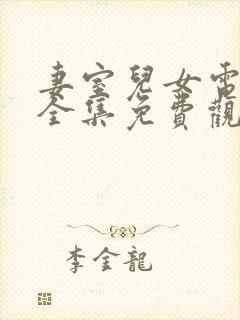 妻室兒女電
全集免費觀
李金龍